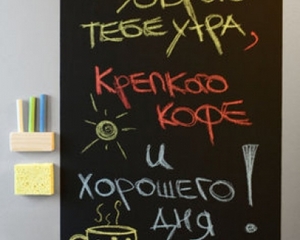 ТЕБЕ УТРА,
КРЕПКОГО
КОФЕ
И
ХОРОШЕГО
ДНЯ!